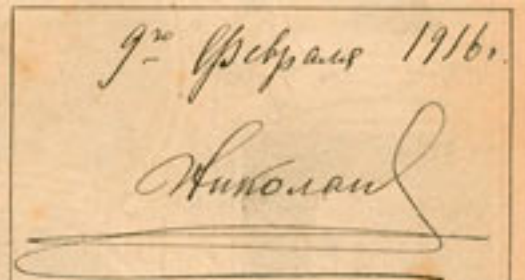 9го Февраля 1916г.
Николай